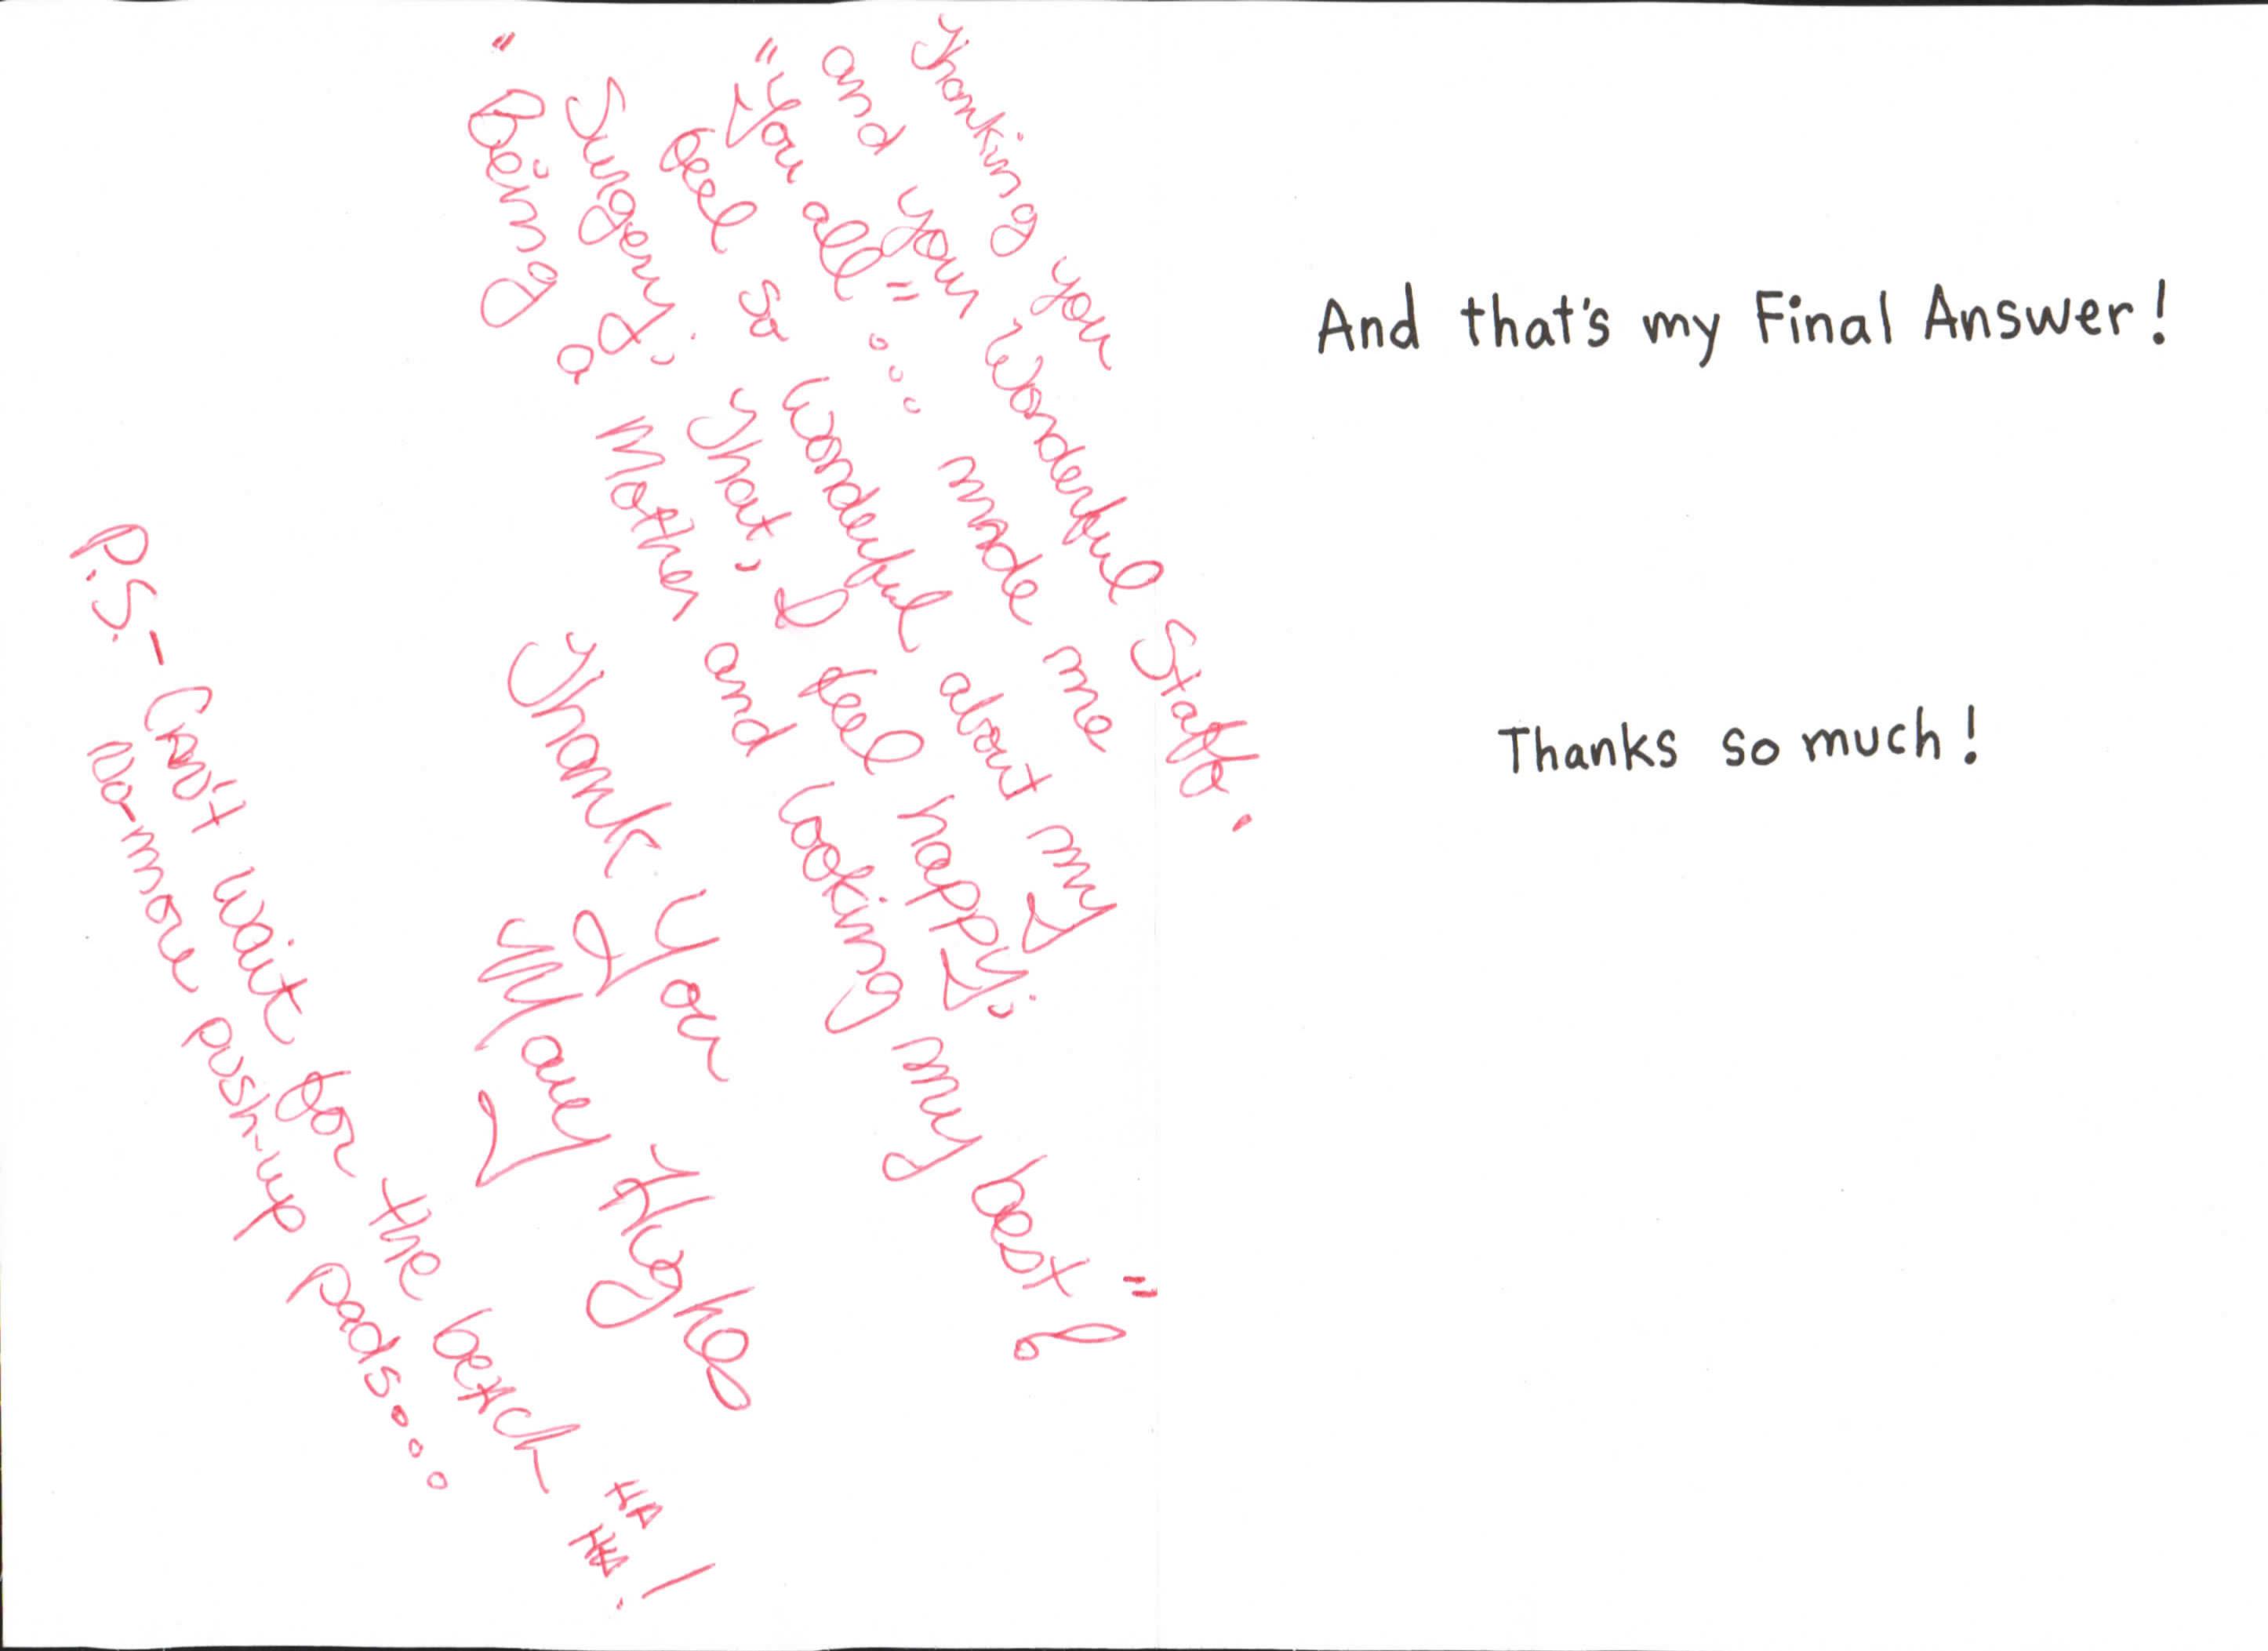 Thanking you
and your Wonderful Staff.
"You all"... made me
feel so wonderful about my
Surgery; That, I feel happy;
"Being a Mother and looking my best!"
Thank You
Mary Hughes
P.S.- Can't wait for the beach HA HA!
No-more push-up pads....
And that's my Final Answer!
Thanks so much!